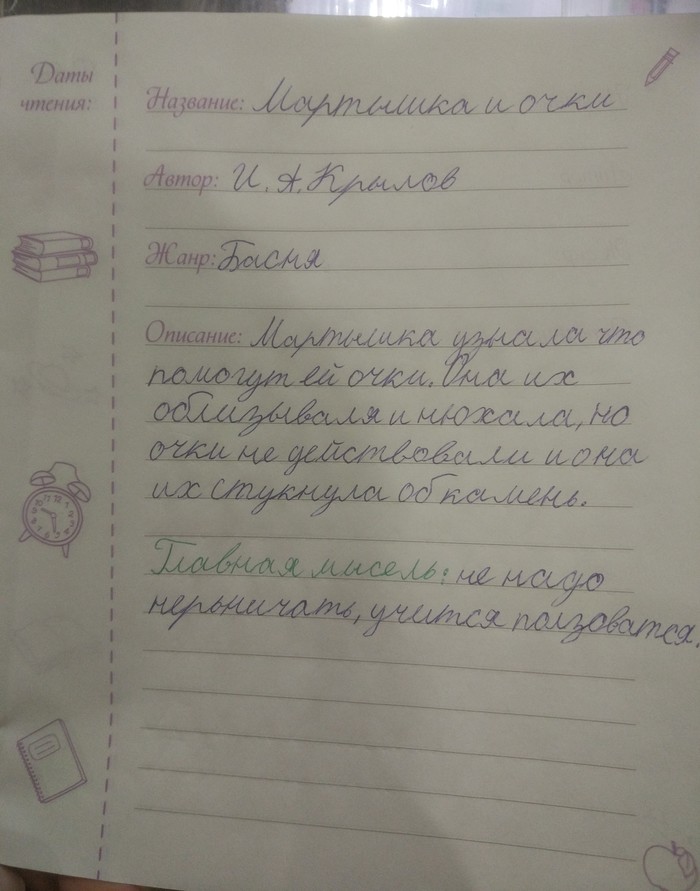 Даты
чтения:
Название: Мартышка и очки
Автор: И. А. Крылов
Жанр: Басня
Описание: Мартышка узнала что
помогут ей очки. Она их
облизываля и нюхала, но
очки не действовали и она
их стукнула об камень.
Главная мисель: не надо
нерьничать, учится ползоватся.